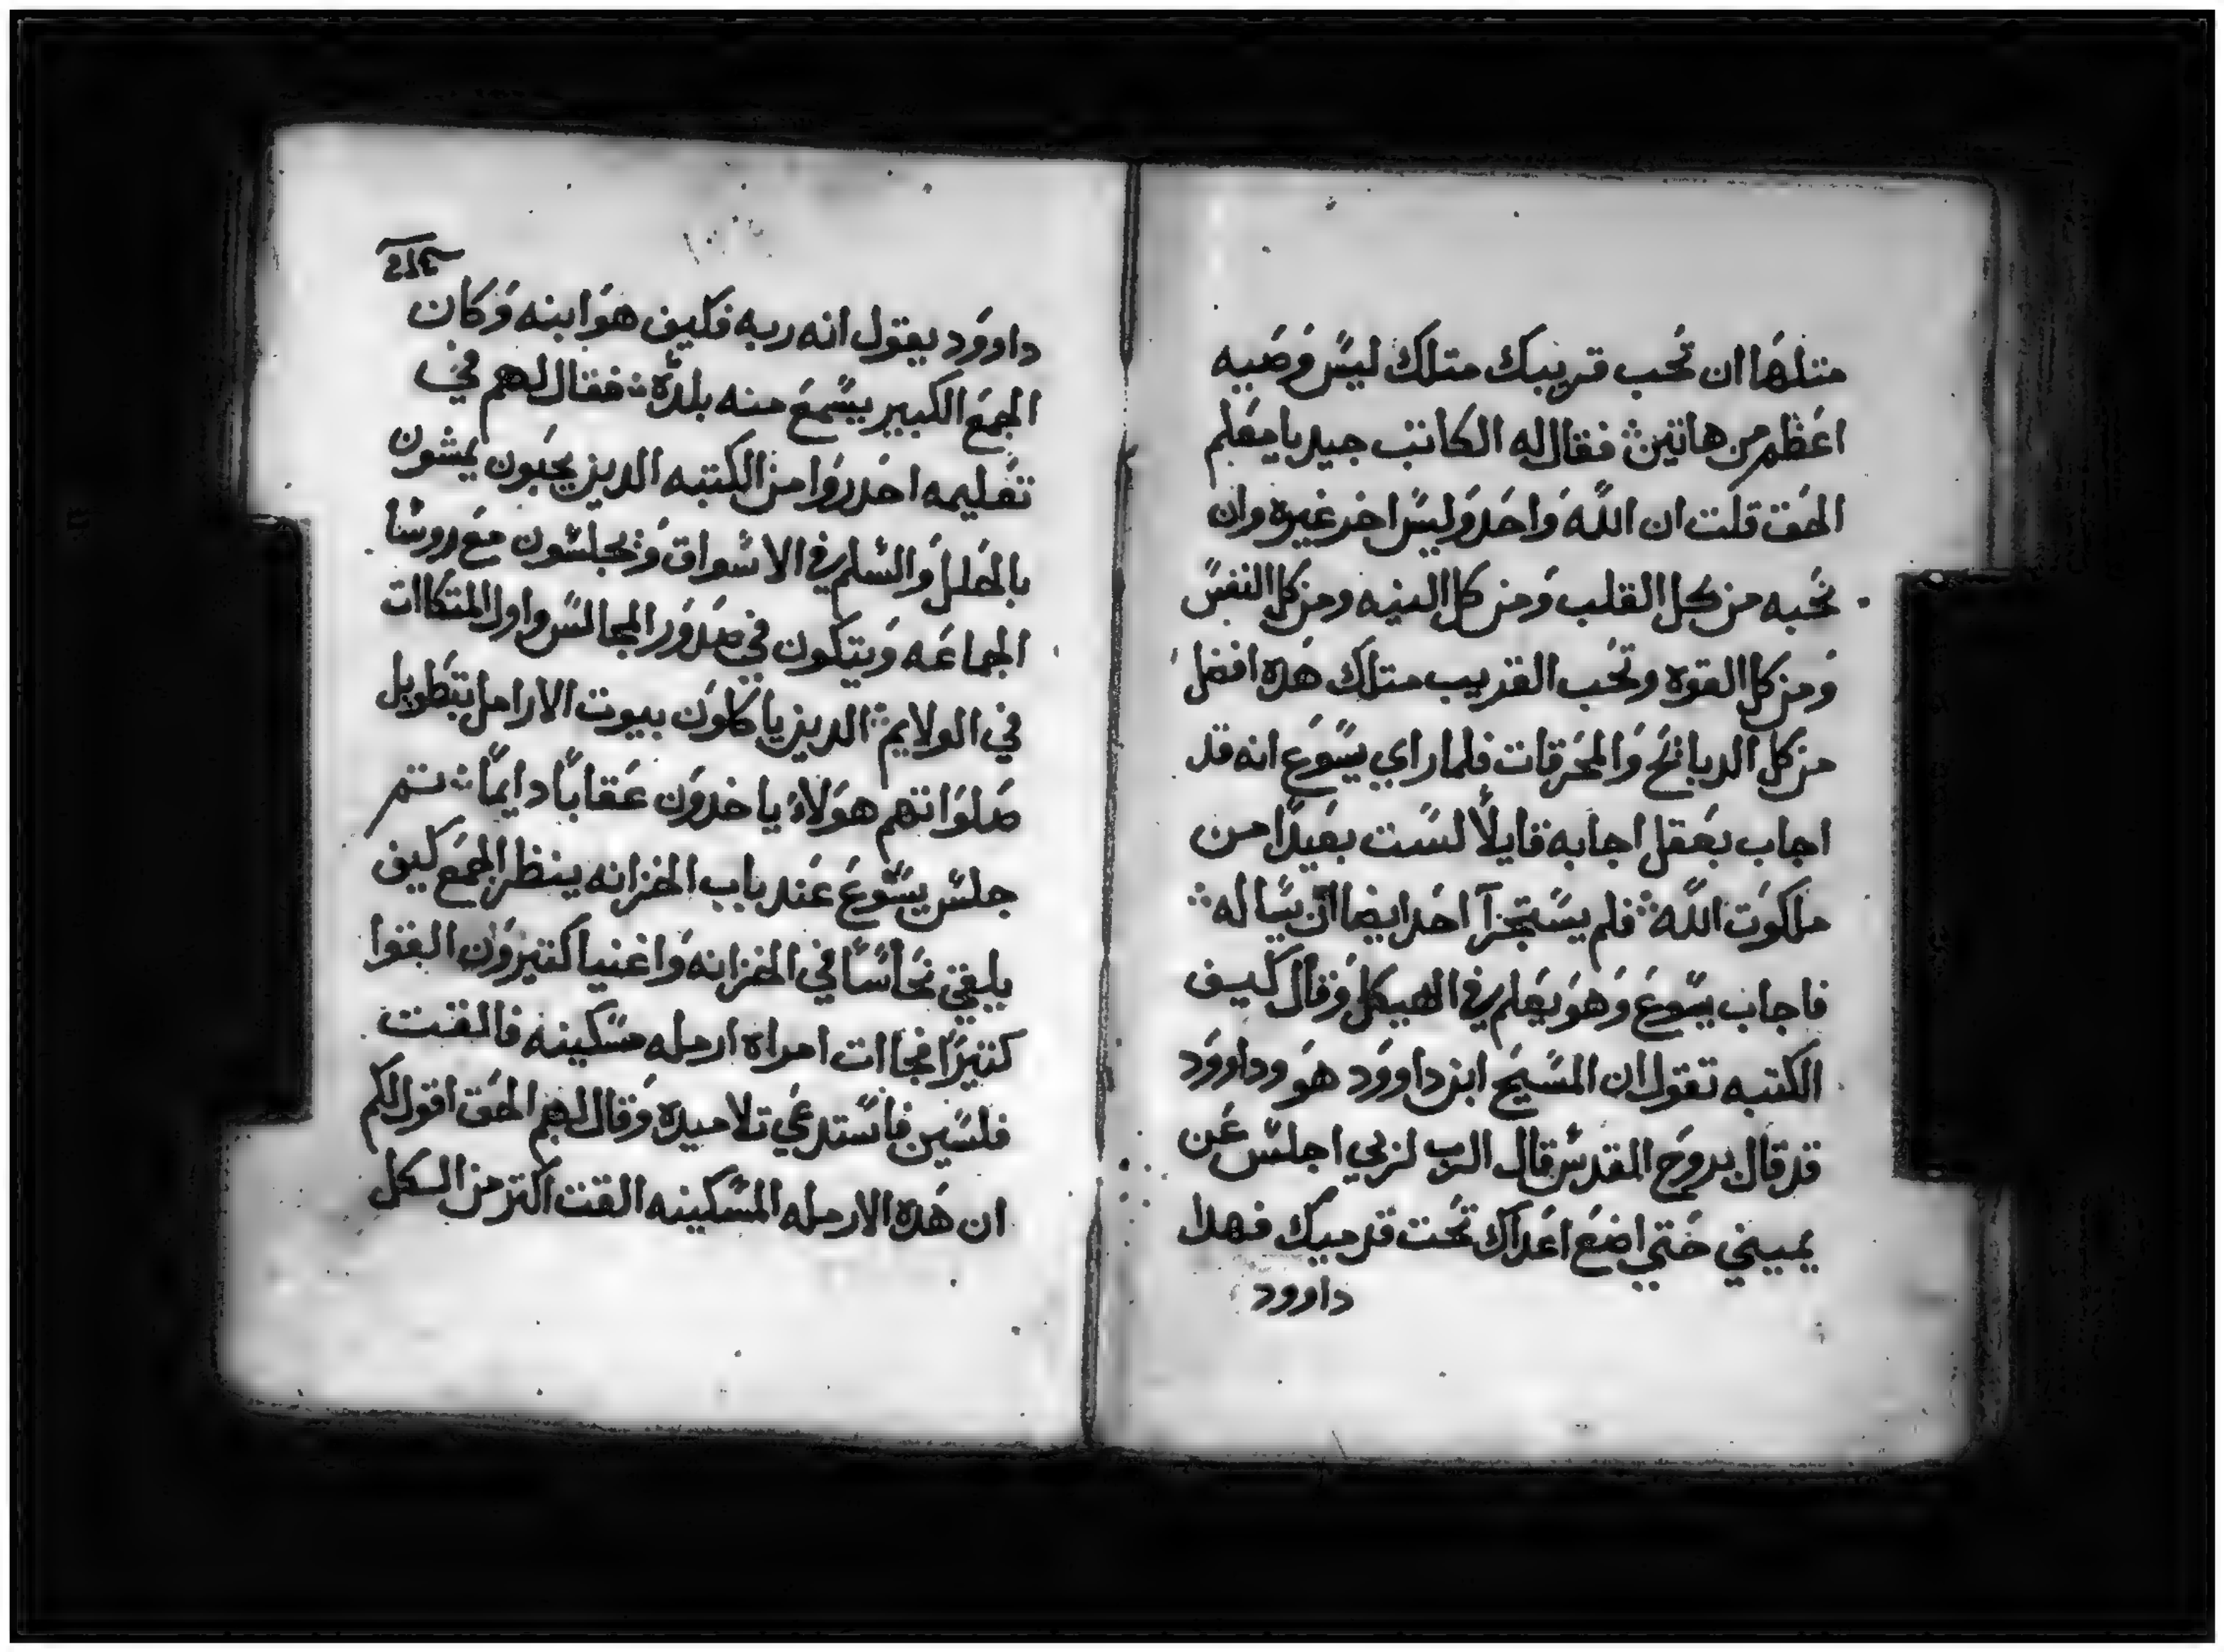 متلها ان تحب قريبك متلك ليس وصيه
اعظم من هاتين فقال له الكاتب جيد يا معلم
الحق قلت ان الله واحد وليس اخر غيره وان
تحبه من كل القلب ومن كل النيه ومن كل النفس
ومن كل القوه وتحب القريب متلك هده افضل
من كل الدبائح والمحرقات فلما راي يسوع انه قد
اجاب بعقل اجابه قايلاً لست بعيدًا من
ملكوت الله فلم يستجزآ احد ايضا ان يساله
فاجاب يسوع وهو يعلم في الهيكل وقال كيف
الكتبه تقول ان المسيح ابن داوود هو وداوود
قد قال بروح القدس قال الرب لربي اجلس عن
يميني حتي اضع اعداك تحت قدميك فهدا
داوود
داوود يقول انه ربه فكيف هو ابنه وكان
الجمع الكبير يسمع منه بلده فقال لهم في
تعليمه احدروا من الكتبه الدين يحبون يمشون
بالحلل والسلم في الاسواق ويجلسون مع روسا
الجماعه ويتكون في صدور المجالس واول المتكاات
في الولايم الدين ياكلون بيوت الارامل بتطويل
صلواتهم هولاء ياخدون عقابًا دايمًا تم
جلس يسوع عند باب الخزانه ينظر الجمع كيف
يلقي نحاسًا في الخزانه واغنيا كتيرون القوا
كتيرًا فجاات امراه ارمله مسكينه فالقت
فلسين فاستدعي تلاميده وقال لهم الحق اقول لكم
ان هده الارمله المسكينه القت اكتر من الكل